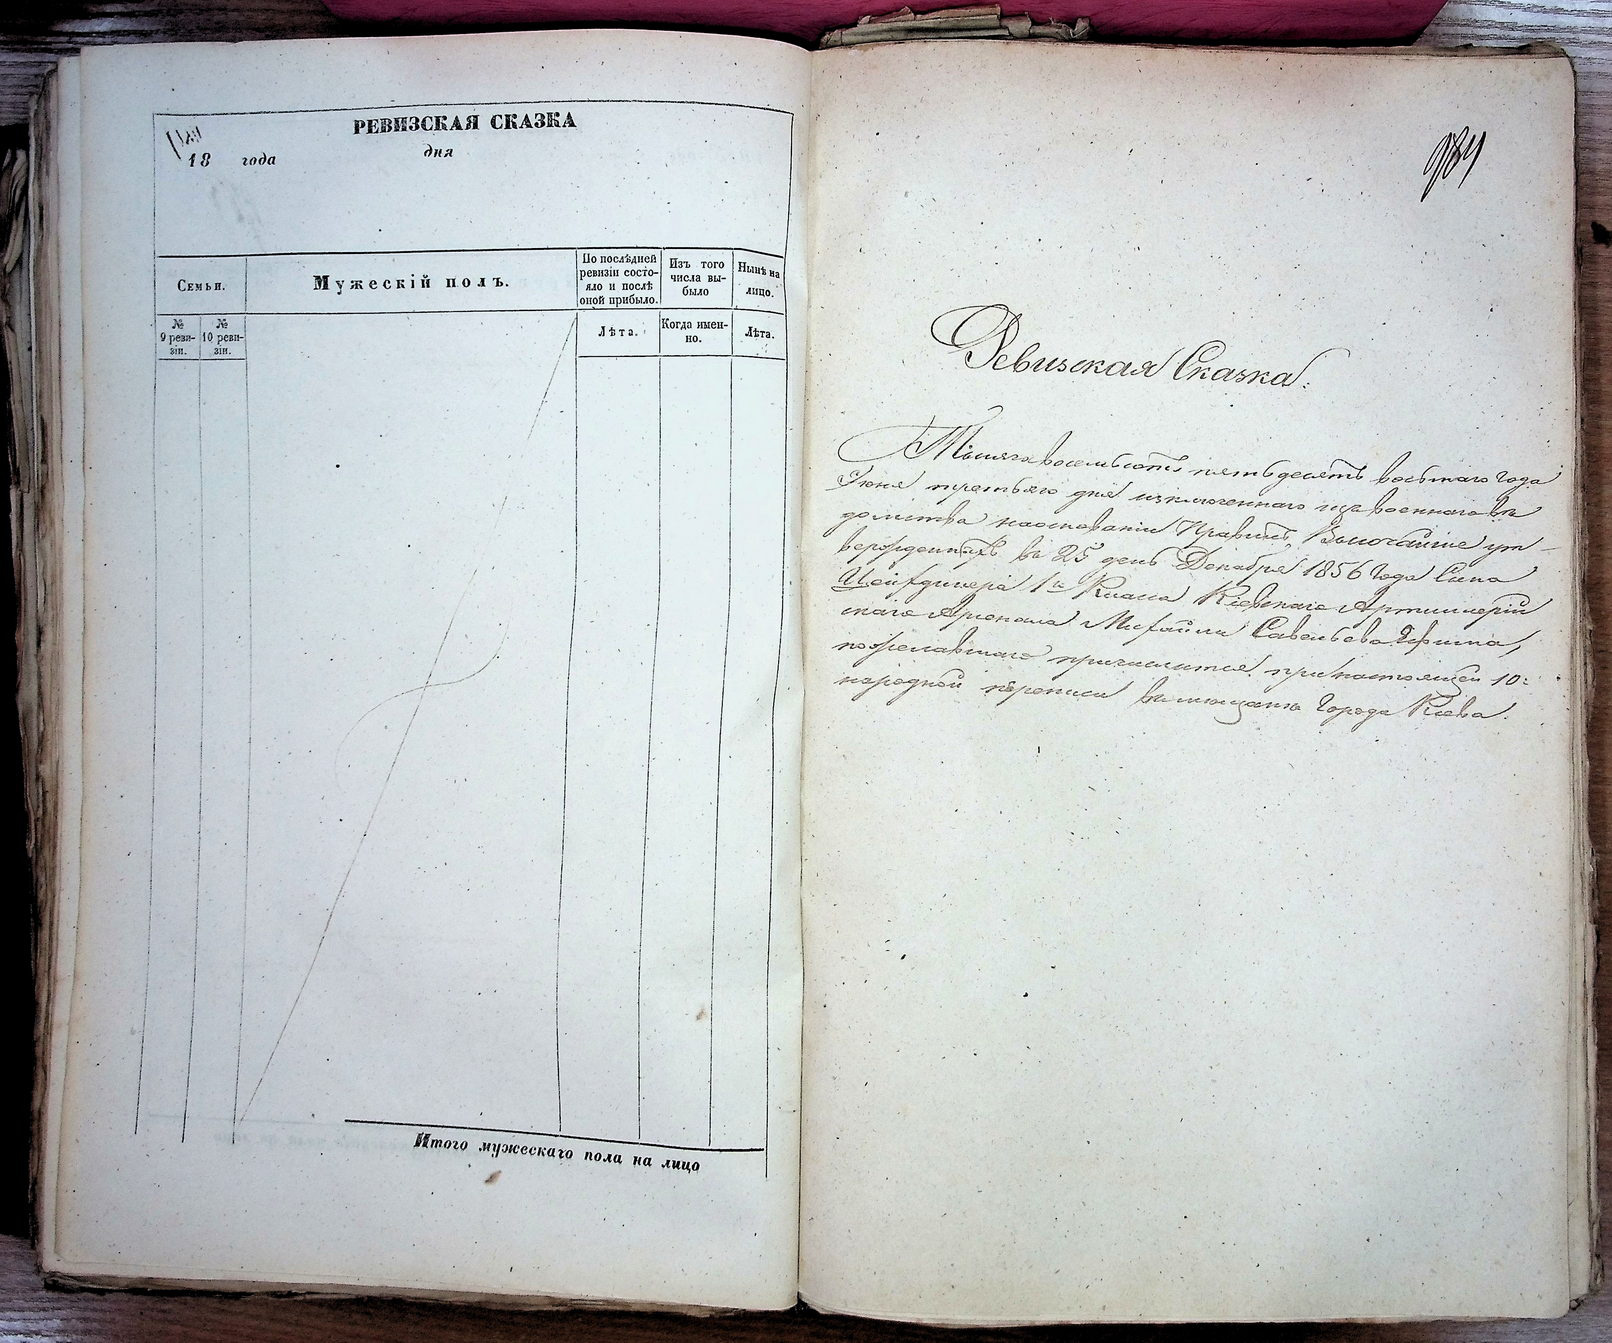 РЕВИЗСКАЯ СКАЗКА
18 года дня
Семьи.
Мужескій полъ.
По послѣдней ревизіи состо-
яло и послѣ
оной прибыло.
Изъ того
числа вы-
было
Нынѣ на
лицо.
№
9 реви-
зіи.
№
10 реви-
зіи.
Лѣта.
Когда имен-
но.
Лѣта.
Итого мужескаго пола на лицо
984
Ревизская Сказка:
Тысяча восемьсотъ пятьдесятъ восьмаго года
Іюня третьяго дня изключеннаго изъ военнаго вѣ
домства наоснованіи Правилъ, Высочайше ут-
вержденныхъ въ 25 день Декабря 1856 года Сына
Цейхдинера 1го Класса Кіевскаго Артиллерій
скаго Арсенала Михайла Савельева
пожелавшаго причислится при настоящей 10:
народной переписи въ мещане города Кіева.